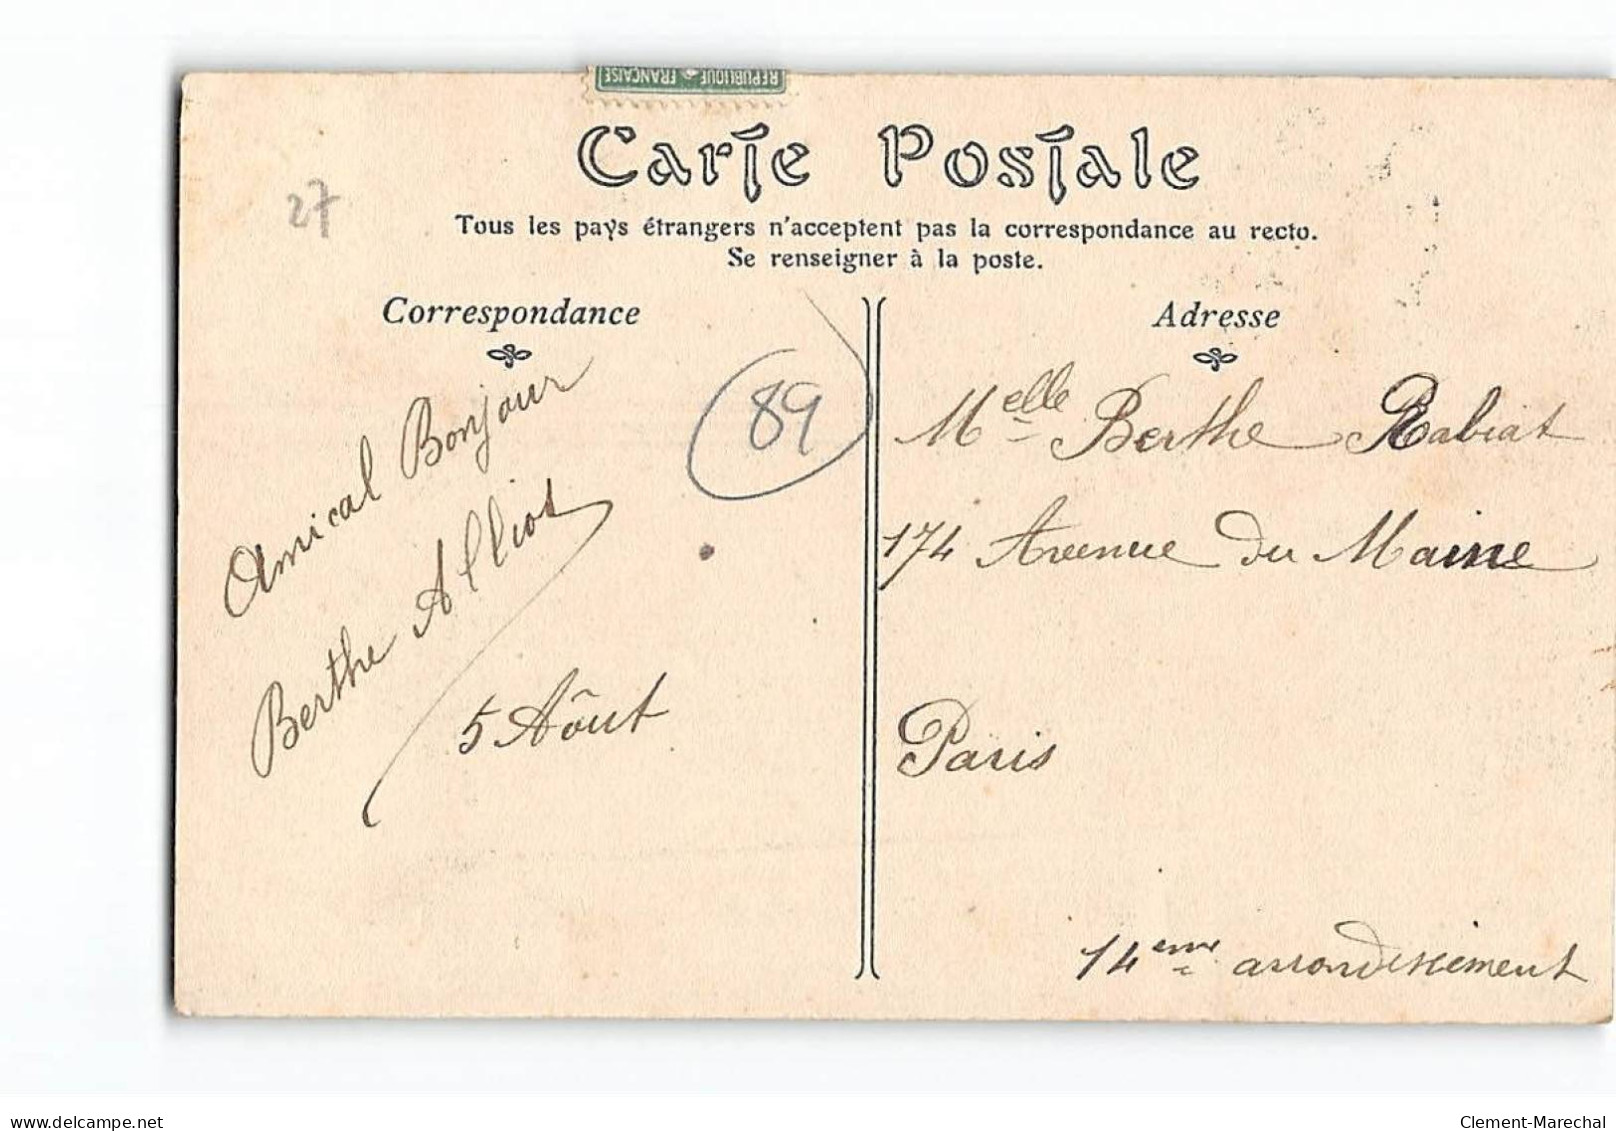 REPUBLIQUE FRANÇAISE
Carte Postale
27
Tous les pays étrangers n'acceptent pas la correspondance au recto.
Se renseigner à la poste.
Correspondance
Amical Bonjour
Berthe Alliot
5 Aôut
89
Adresse
Melle Berthe Rabiat
174 Avenue du Maine
Paris
14eme arrondissement
delcampe.net
Clement-Marechal